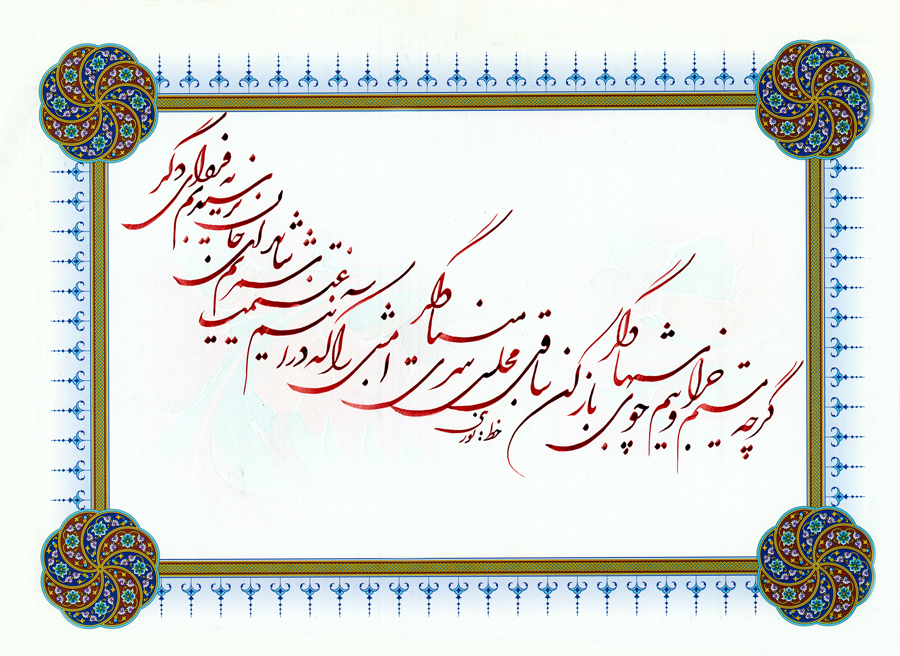 گرچه مستیم و خرابیم چو شبهای دگر
باز کن ساقی مجلس سر مینای دگر
امشبی را که در آنیم غنیمت شمریم
شاید ای جان نرسیدیم به فردای دگر
خط: نوری